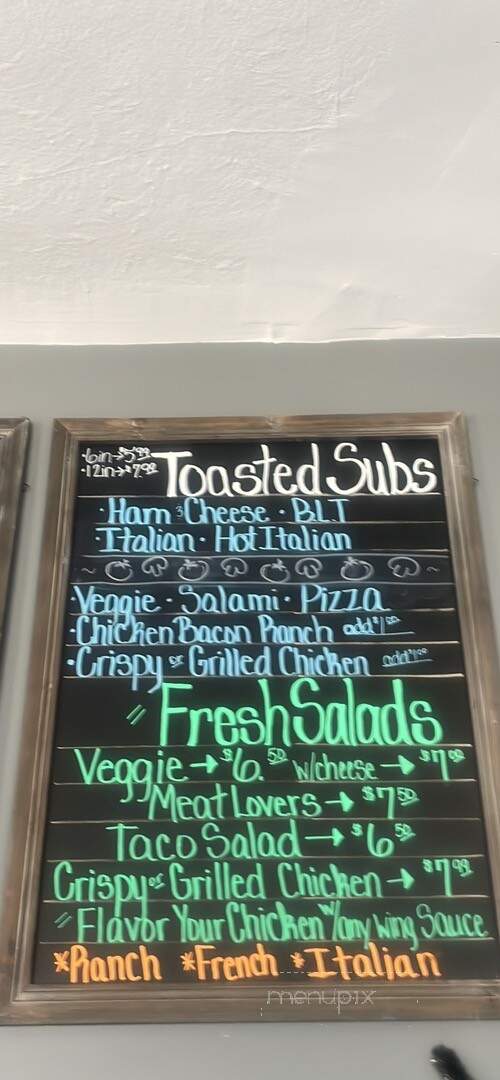 ·6in→$5.99
·12in→$7.99
Toasted Subs
·Ham & Cheese · B.L.T
·Italian · Hot Italian
·Veggie · Salami · Pizza
·Chicken Bacon Ranch add $1.00
·Crispy or Grilled Chicken add $1.00
" Fresh Salads
Veggie → $6.50 w/cheese → $7.00
Meat Lovers → $7.50
Taco Salad → $6.50
Crispy or Grilled Chicken → $7.99
" Flavor Your Chicken w/any wing Sauce
*Ranch *French *Italian
menupix